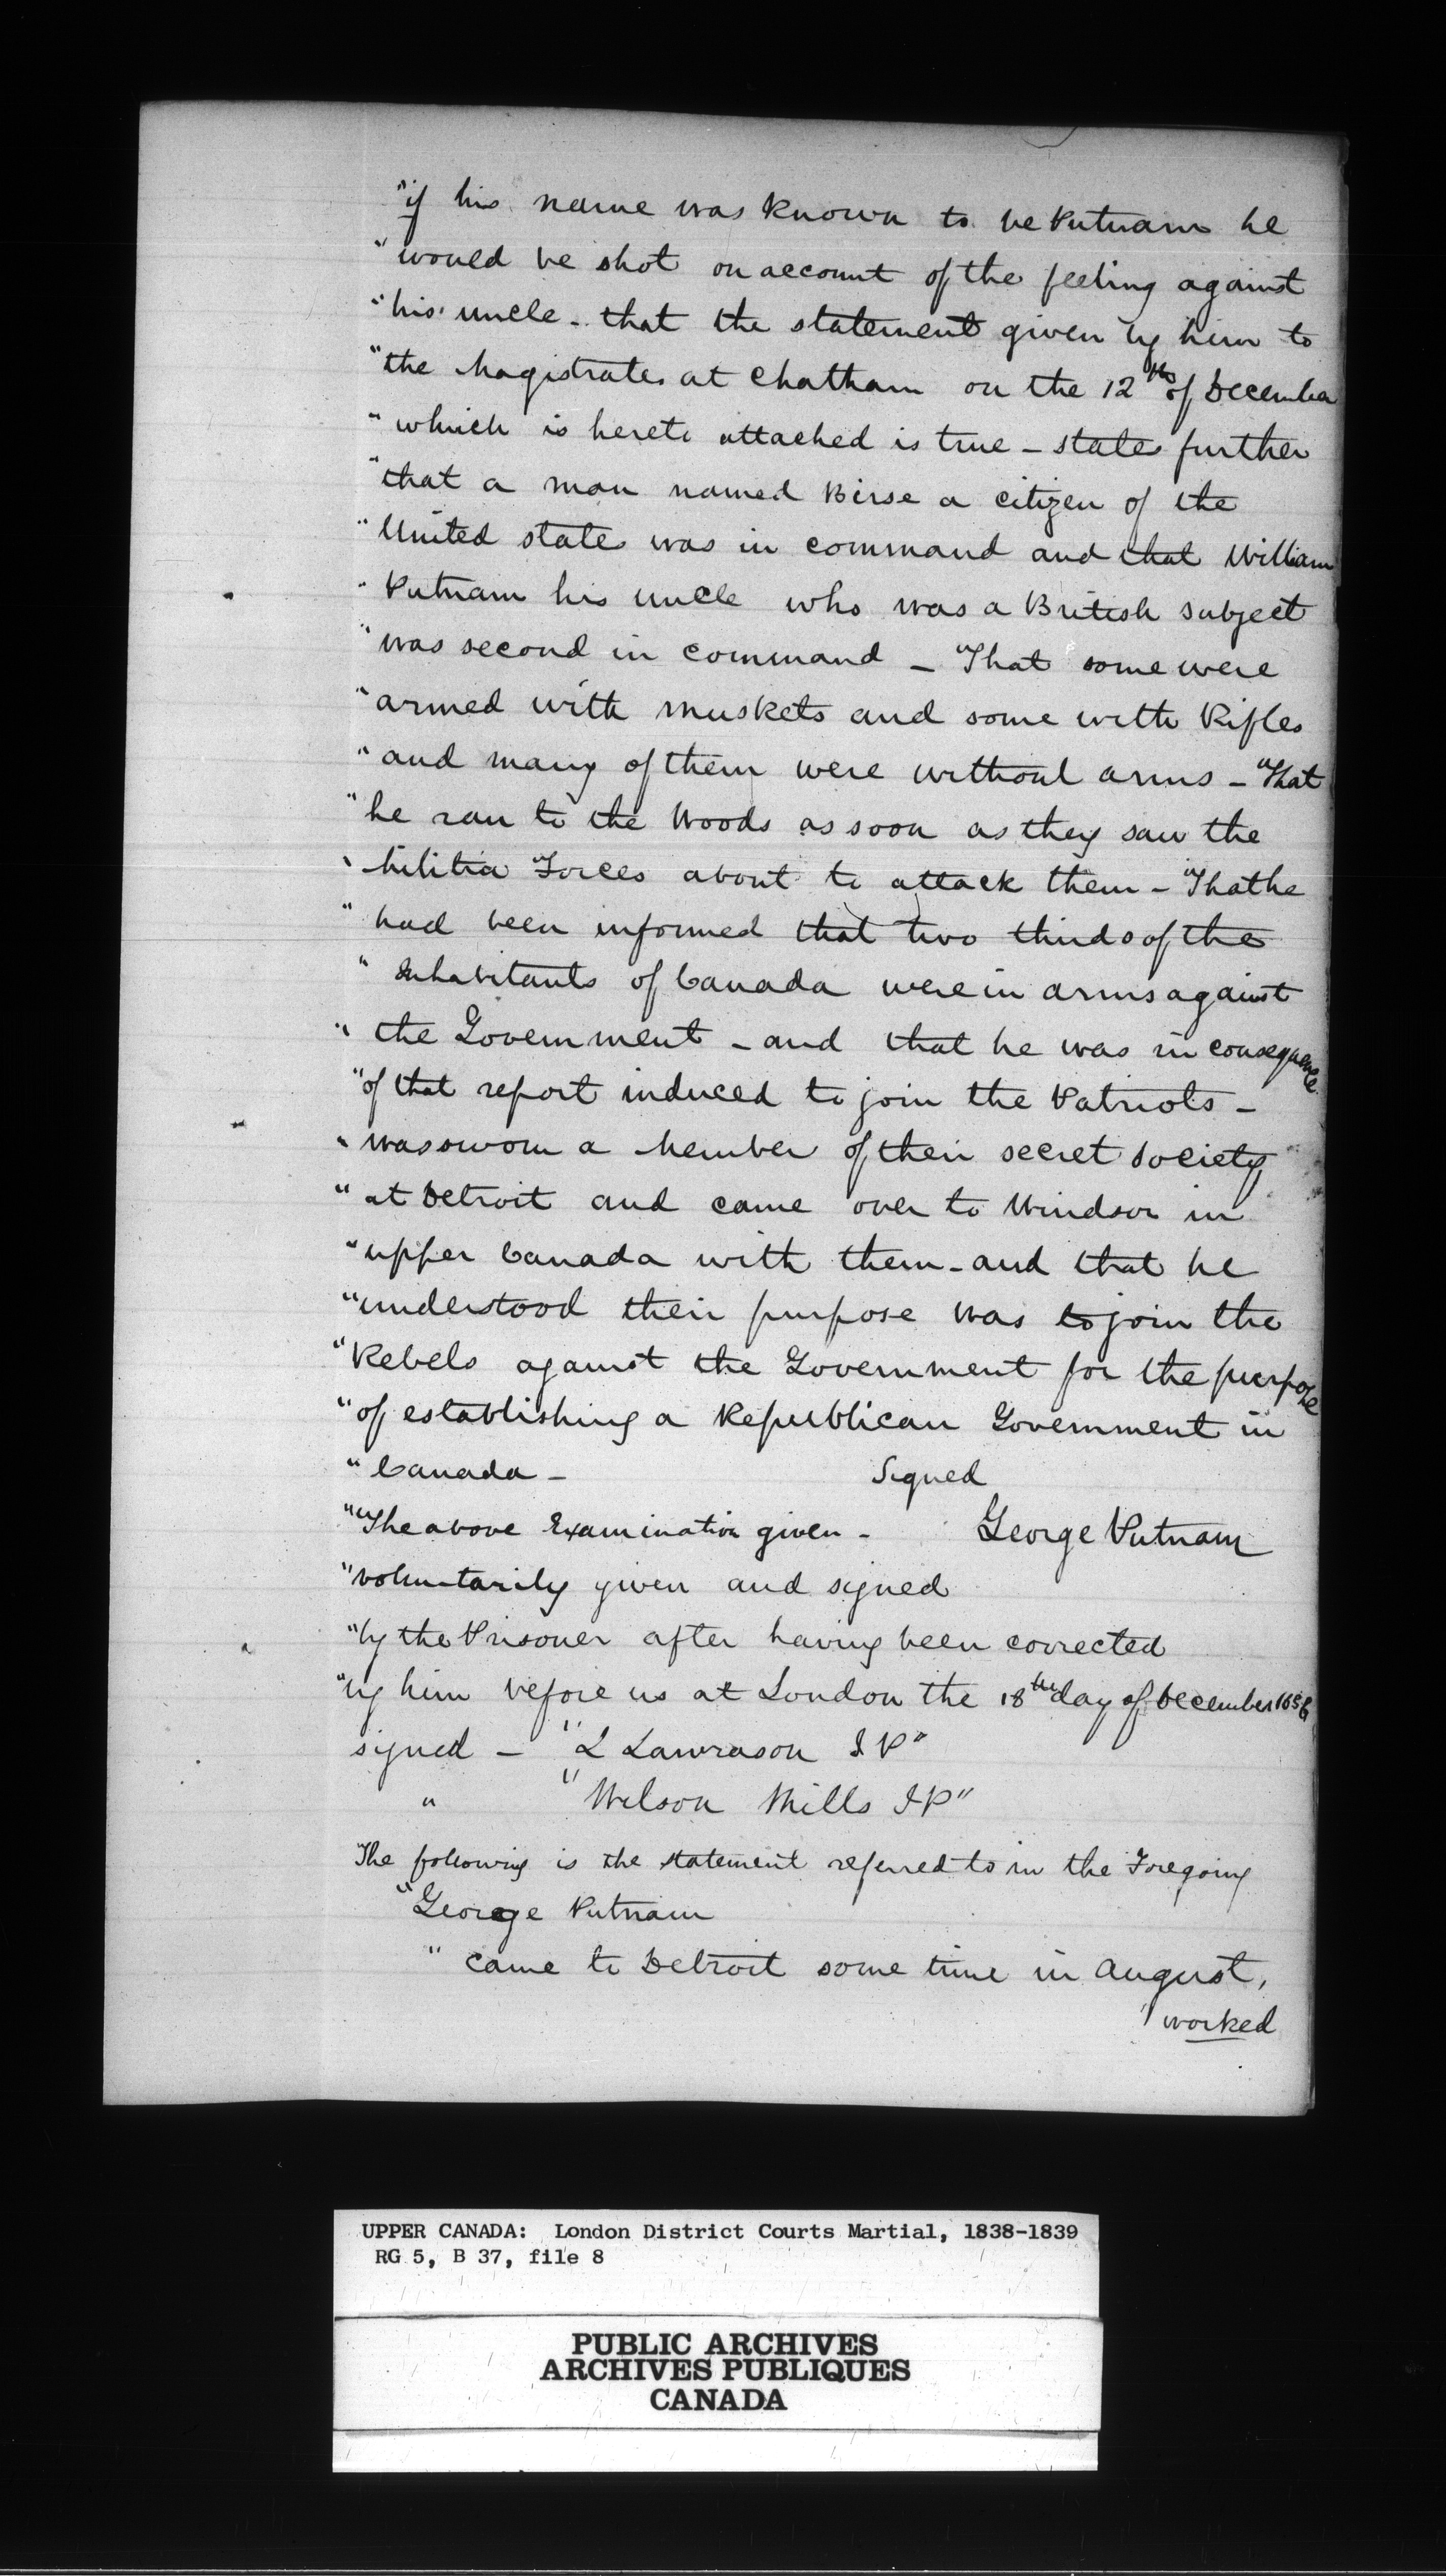 "if his name was known to be Putnam he
"would be shot on account of the feeling against
"his uncle - that the statement given by him to
"the Magistrates at Chatham on the 12th of December
"which is hereto attached is true - states further
"that a man named Birse a citizen of the
"United states was in command and that William
"Putnam his uncle who was a British subject
"was second in command - That some were
"armed with muskets and some with Rifles
"and many of them were without arms - That
"he ran to the Woods as soon as they saw the
"Militia Forces about to attack them - That he
"had been informed that two thirds of the
"Inhabitants of Canada were in arms against
"the Government - and that he was in consequence
"of that report induced to join the Patriots -
"was sworn a Member of their secret Society
"at Detroit and came over to Windsor in
"upper Canada with them - and that he
"understood their purpose was to join the
"Rebels against the Government for the purpose
"of establishing a Republican Government in
"Canada - Signed
"The above Examination given - George Putnam
"voluntarily given and signed
"by the Prisoner after having been corrected
"by him before us at London the 18th day of December 1838
signed - "L Lawrason J P"
" "Wilson Mills J P"
The following is the statement referred to in the Foregoing
"George Putnam
" came to Detroit some time in August,
" worked
UPPER CANADA: London District Courts Martial, 1838-1839
RG 5, B 37, file 8
PUBLIC ARCHIVES
ARCHIVES PUBLIQUES
CANADA